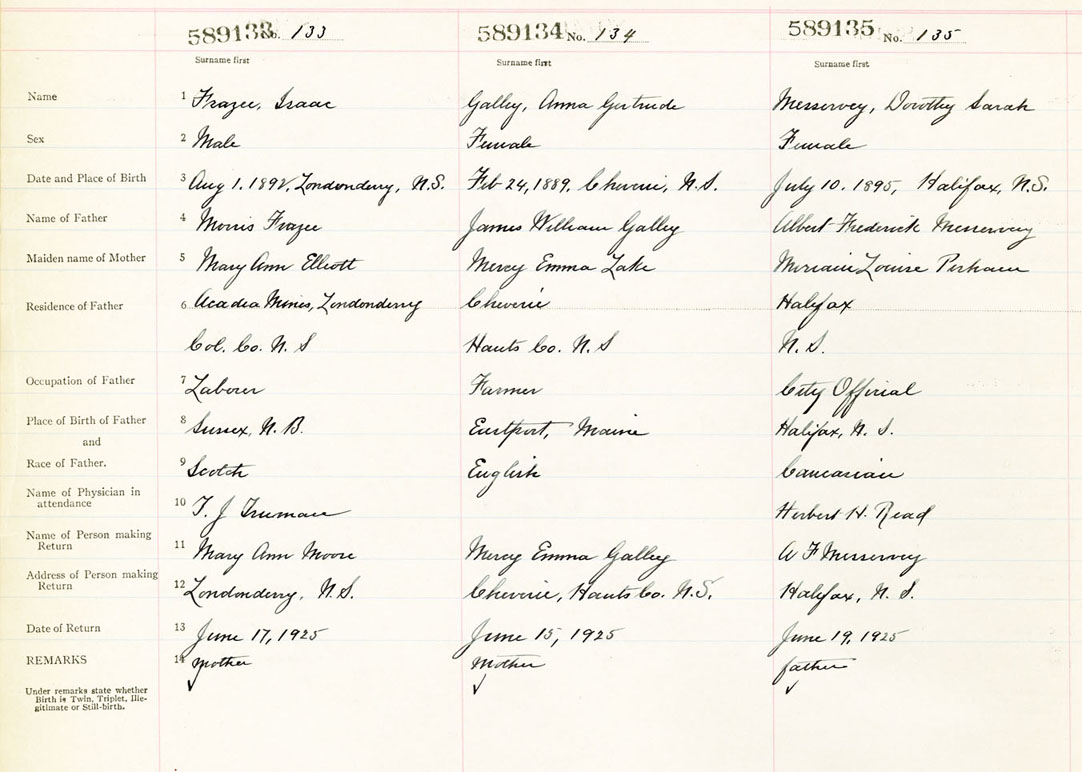 589133 No. 133 589134 No. 134 589135 No. 135
Surname first Surname first Surname first
Name 1 Frazee, Isaac Galley, Anna Gertrude Messervey, Dorothy Sarah
Sex 2 Male Female Female
Date and Place of Birth 3 Aug 1. 1892, Londonderry, N.S. Feb 24, 1889, Cheverie, N.S. July 10. 1895, Halifax, N.S.
Name of Father 4 Morris Frazee James William Galley Albert Frederick Messervey
Maiden name of Mother 5 Mary Ann Elliott Mercy Emma Lake Louise Perham
Residence of Father 6 Acadia Mines, Londonderry Cheverie Halifax
Col. Co. N. S Hants Co. N. S N. S.
Occupation of Father 7 Laborer Farmer City Official
Place of Birth of Father 8 Sussex, N. B. Eastport, Maine Halifax, N. S.
and
Race of Father. 9 Scotch English Caucasian
Name of Physician in
attendance 10 T. J Truman Herbert H. Read
Name of Person making
Return 11 Mary Ann Moore Mercy Emma Galley A F Messervey
Address of Person making
Return 12 Londonderry, N.S. Cheverie, Hants Co. N.S. Halifax, N. S.
Date of Return 13 June 17, 1925 June 15, 1925 June 19, 1925
REMARKS 14 mother Mother father
Under remarks state whether
Birth is Twin, Triplet, Ille-
gitimate or Still-birth.